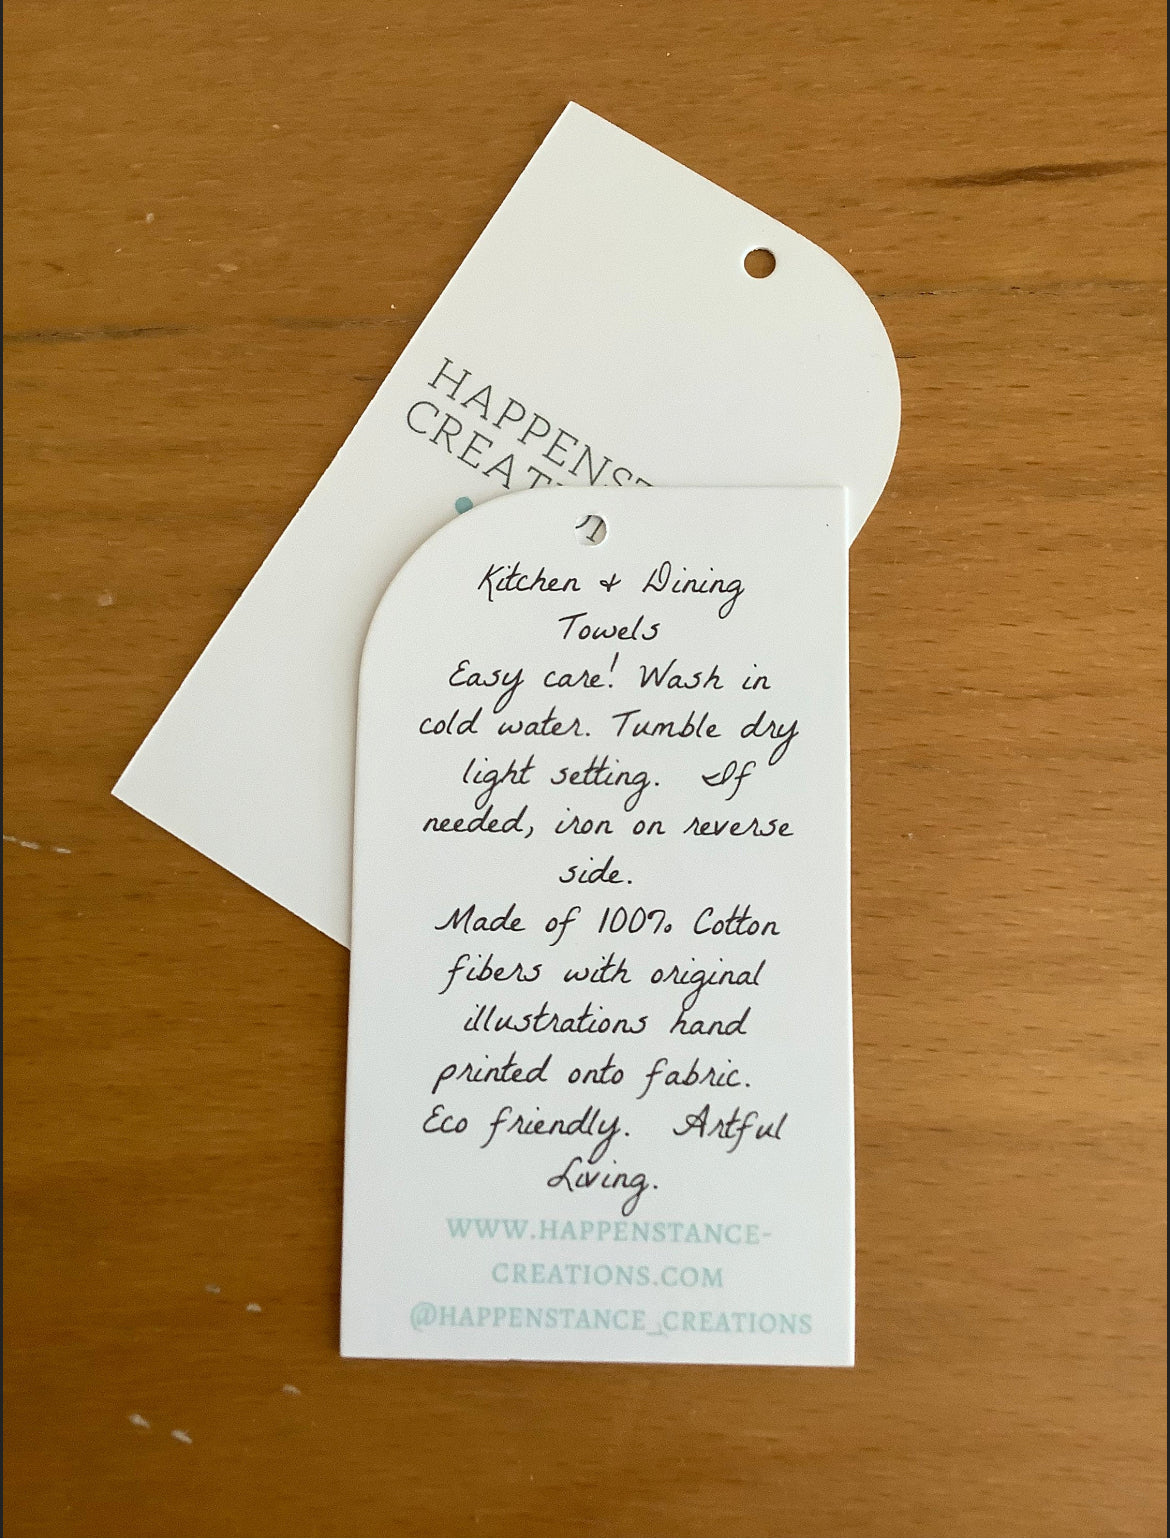 HAPPENST
CREATI
Kitchen & Dining
Towels
Easy care! Wash in
cold water. Tumble dry
light setting. If
needed, iron on reverse
side.
Made of 100% Cotton
fibers with original
illustrations hand
printed onto fabric.
Eco friendly. Artful
Living.
WWW.HAPPENSTANCE-
CREATIONS.COM
@HAPPENSTANCE_CREATIONS